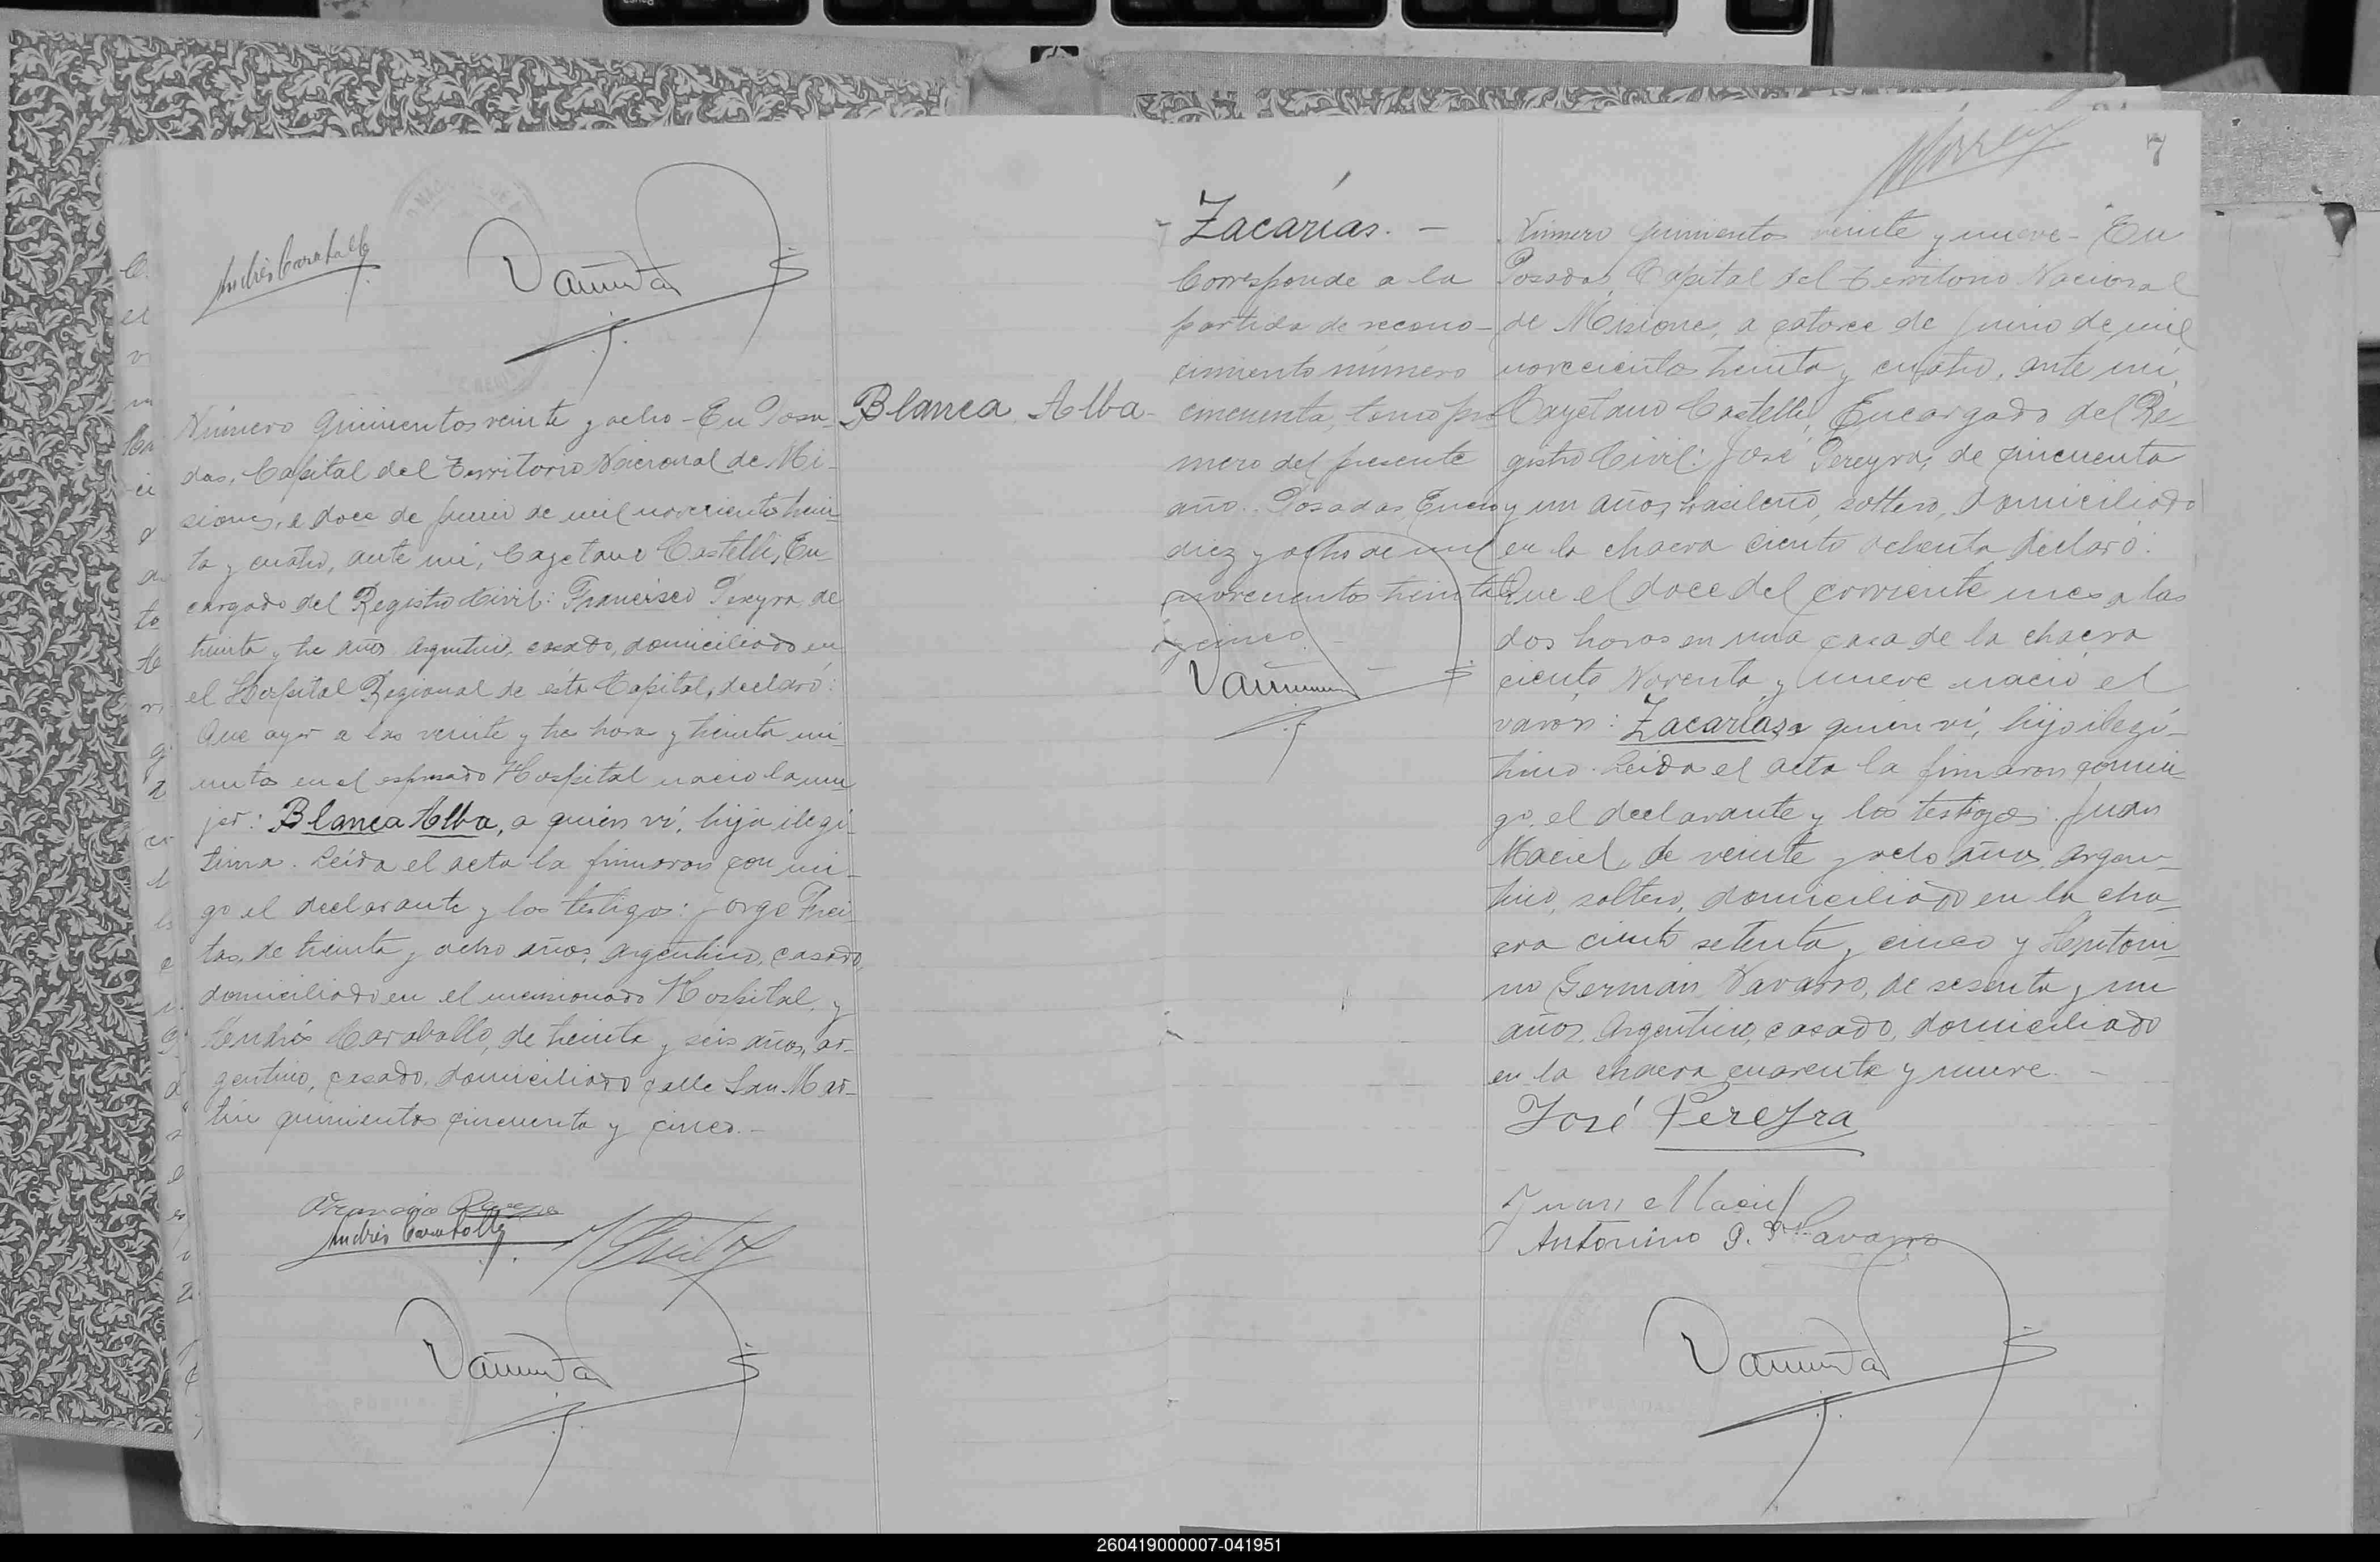 Andrés Caraballo
Número quinientos veinte y ocho - En Posa-
das, Capital del Territorio Nacional de Mi-
siones, a doce de Junio de mil novecientos trein-
ta y cuatro, ante mí, Cayetano Castelli, En-
cargado del Registro Civil: Francisco Pereyra, de
treinta y tre años, argentino, casado, domiciliado en
el Hospital Regional de ésta Capital, declaró:
Que ayer a las veinte y tre hora y treinta mi-
nutos en el espresado Hospital nació la mu
jer: Blanca Alba, a quién ví, hija ilegí-
tima. Leída el acta la firmaron con mi-
go el declarante y los testigos: Jorge Frei-
tas, de treinta y ocho años, argentino, casado,
domiciliado en el mensionado Hospital, y
Andrés Caraballo, de treinta y seis años, ar-
gentino, casado, domiciliado calle San Mar-
tín quinientos cincuenta y cinco.-
Andrés Caraballo
Blanca Alba-
Zacarías. -
Corresponde a la
partida de recono-
cimiento número
cincuenta, tomo pri
mero del presente
año. Posadas, Enero
diez y ocho de mil
novecientos treinta
y cinco. -
7
Número quinientos veinte y nueve - En
Posadas, Capital del Territorio Nacional
de Misiones, a catorce de Junio de mil
novecientos treinta y cuatro, ante mí,
Cayetano Castelli, Encargado del Re-
gistro Civil: José Pereyra, de cincuenta
y un años, brasileño, soltero, domiciliado
en la chacra ciento ochenta declaró:
Que el doce del corriente mes a las
dos horas en una casa de la chacra
ciento Noventa y nueve nació el
varón: Zacarías, a quién ví, hijo ilegí-
timo. Leída el acta la firmaron conmi-
go, el declarante y los testigos: Juan
Maciel, de veinte y ocho años, argen-
tino, soltero, domiciliado en la cha-
cra ciento setenta y cinco y Antoni-
no Germán Navarro, de sesenta y un
años, Argentino, casado, domiciliado
en la chacra cuarenta y nueve. -
José Pereyra
Juan Maciel
Antonino G. Navarro
260419000007-041951